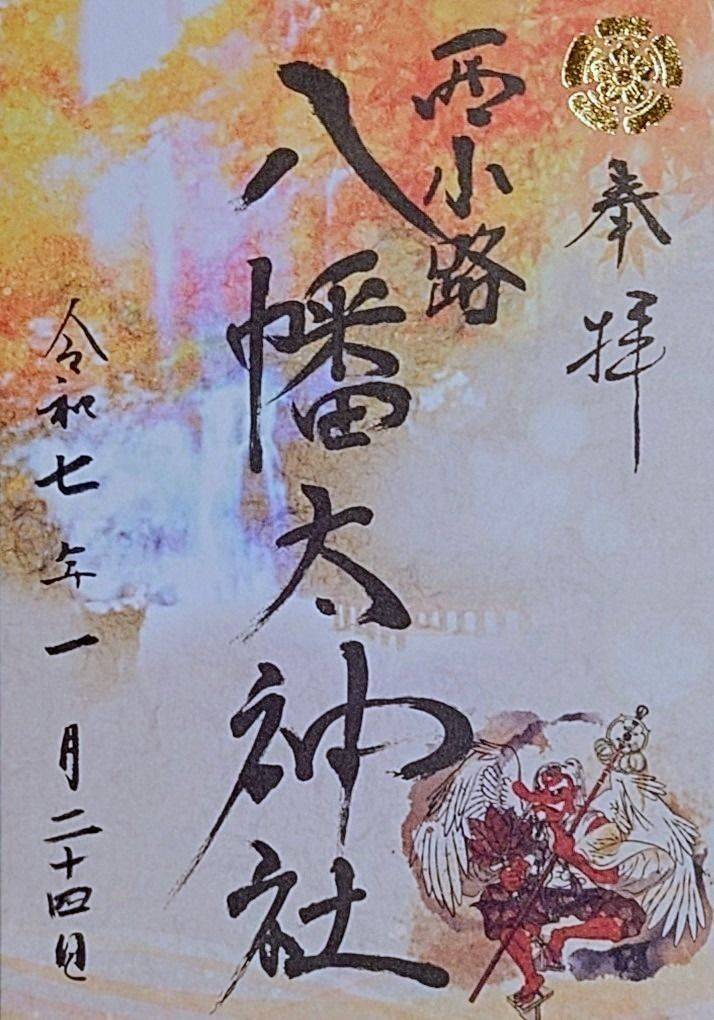 奉拝
西小路
八幡太神社
令和七年一月二十四日